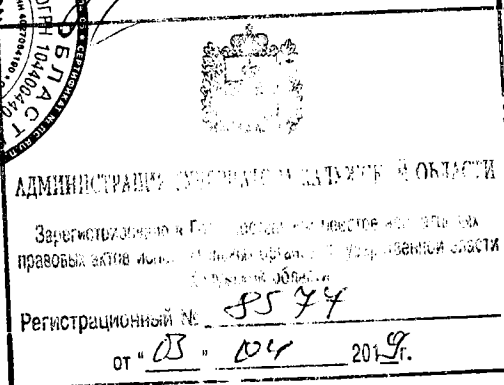 ОБЛАСТ
ОГРН 104400440
АДМИНИСТРАЦИЯ ГУБЕРНАТОРА КАЛУЖСКОЙ ОБЛАСТИ
Зарегистрировано в Государственном реестре нормативных
правовых актов исполнительных органов государственной власти
Калужской области
Регистрационный № 8574
от "03" 04 2019г.